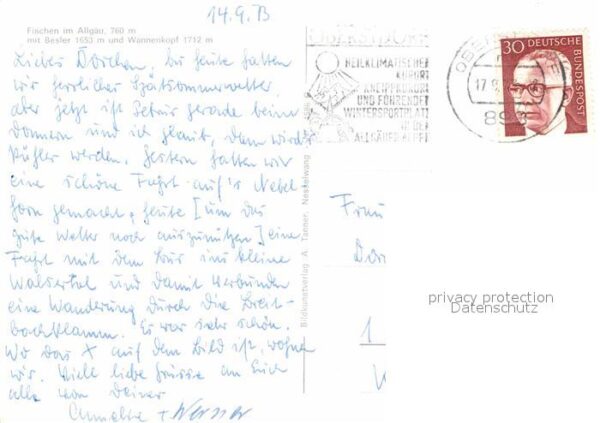 14.9.73
Fischen im Allgäu, 760 m
mit Besler 1653 m und Wannenkopf 1712 m
Liebes Dorchen, bis heute hatten
wir herrliches Spätsommerwetter,
aber jetzt ist Petrus gerade beim
Donnern und ich glaub, dann wird's
kühler werden. Gestern hatten wir
eine schöne Fahrt auf's Nebel
horn gemacht, heute [um das
gute Wetter noch auszunützen] eine
Fahrt mit dem Bus ins kleine
Walsertal und damit verbunden
eine Wanderung durch die Breit-
bachklamm. Es war sehr schön.
Wo das X auf dem Bild ist, wohnen
wir. Viele liebe Grüsse an Euch
alle von Deiner
+ Werner
Bildkunstverlag A. Tanner, Nesselwang
OBERSTDORF
HEILKLIMATISCHER
KURORT
KNEIPPKURORT
UND FÜHRENDER
WINTERSPORTPLATZ
IN DEN
ALLGÄUER ALPEN
17.9.
898
30 DEUTSCHE
BUNDESPOST
Frau
Dor
1
privacy protection
Datenschutz